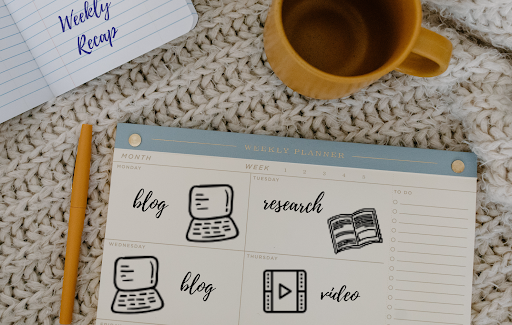 Weekly
Recap
WEEKLY PLANNER
MONTH
WEEK 1 2 3 4 5
MONDAY
TUESDAY
TO DO
blog
research
WEDNESDAY
THURSDAY
blog
video